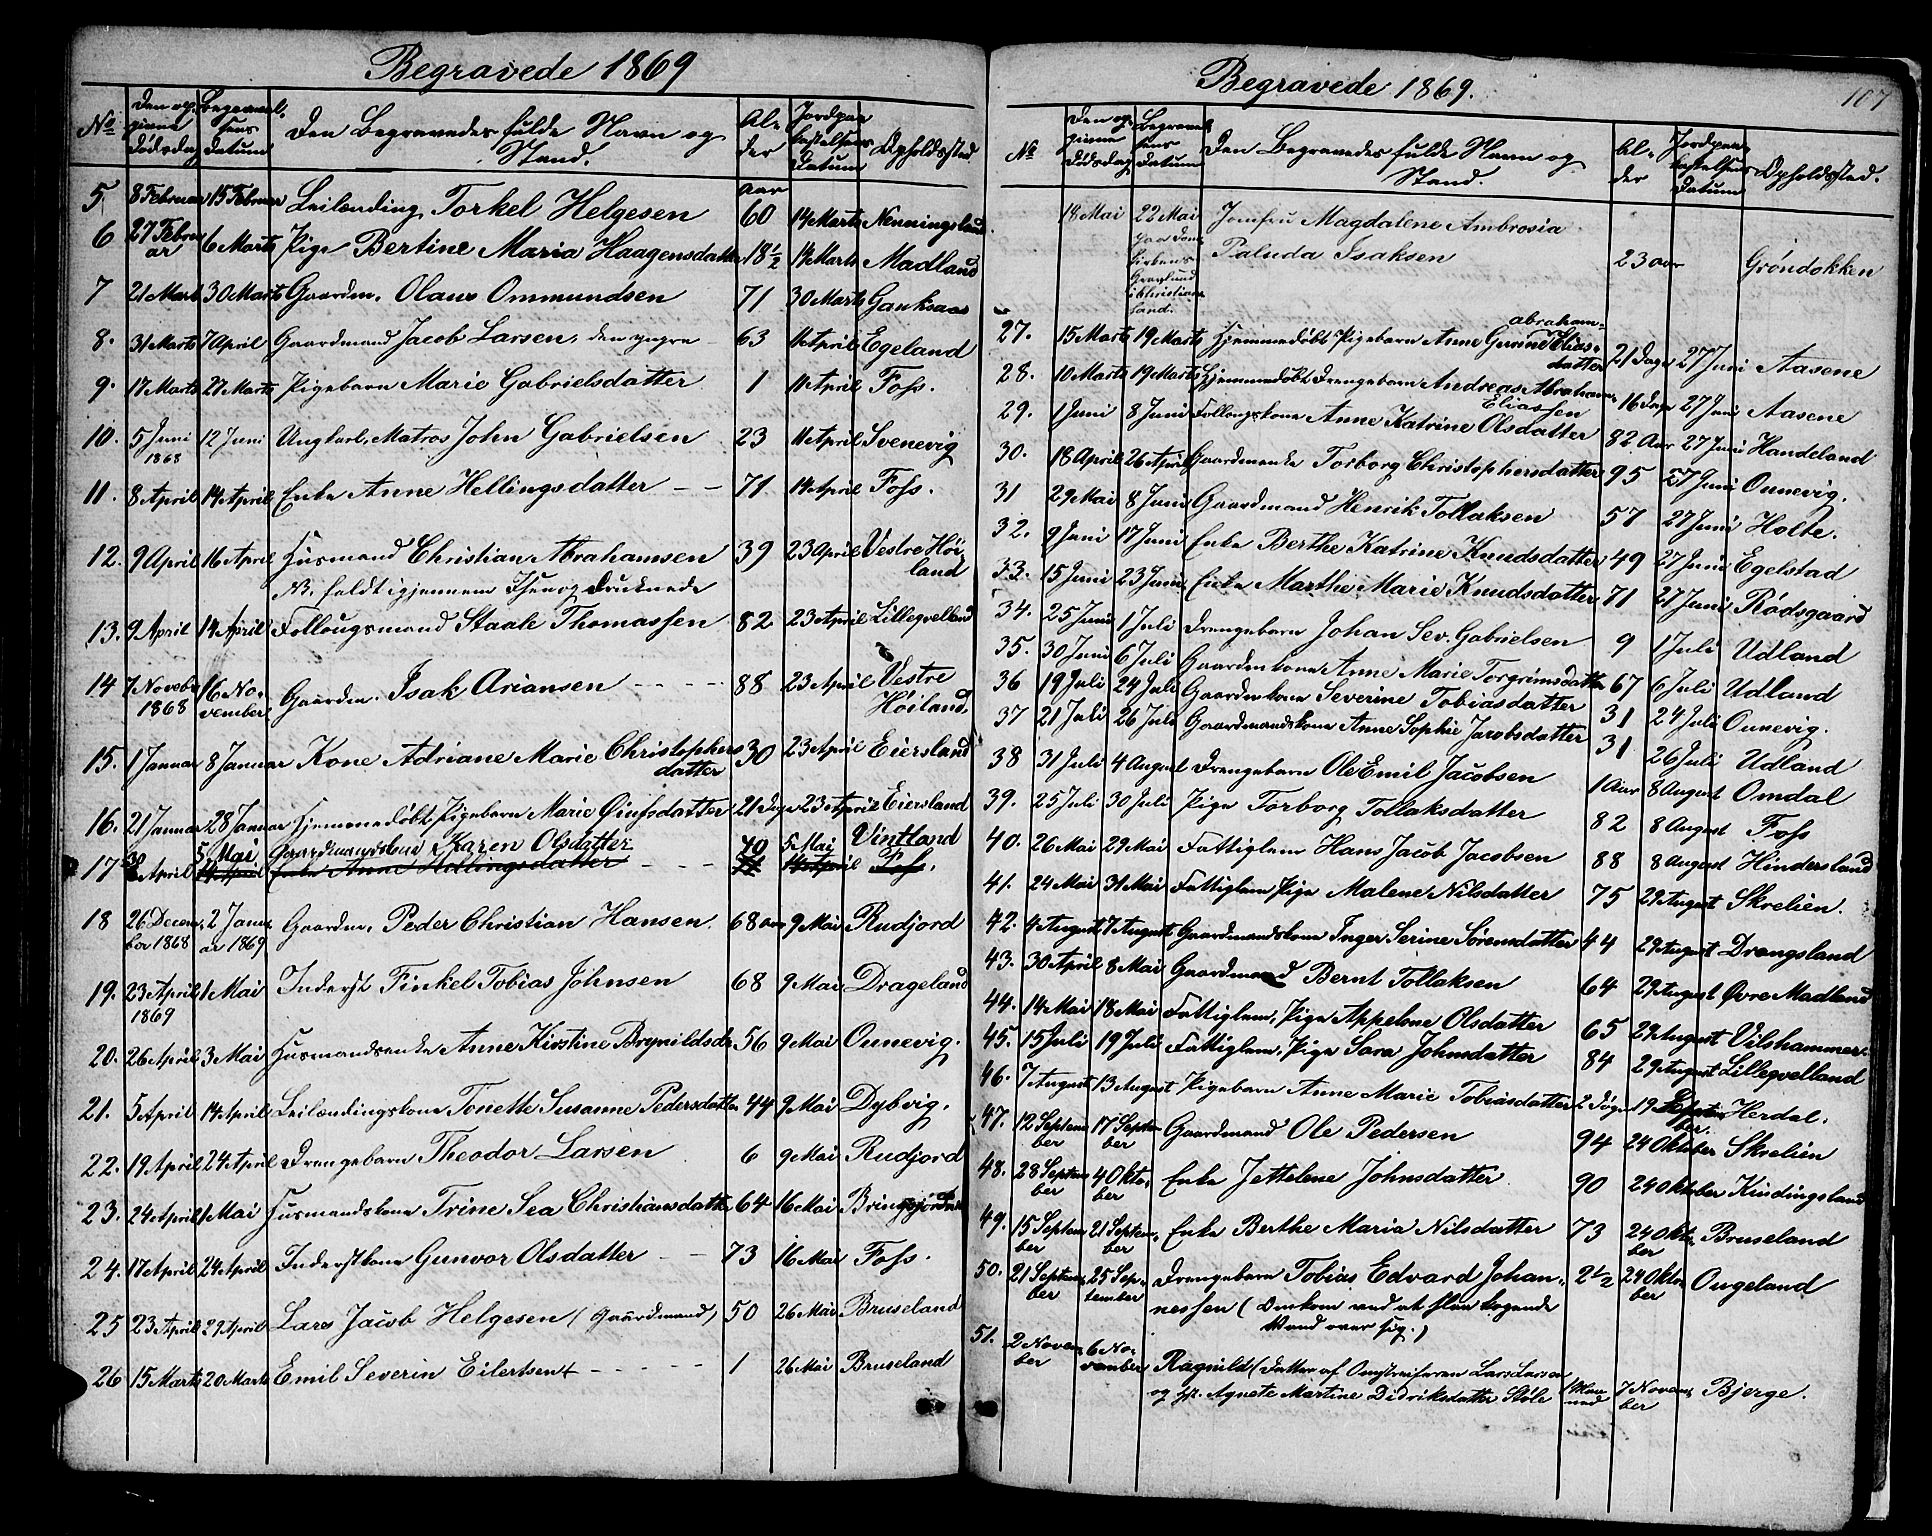 Begravede 1869
No Den opgivne Dødsdag Begravelsens Datum Den Begravedes fulde Navn og Stand. Alder Jordpaakastelsens Datum Opholdssted.
Aar
5 8 Februar 15 Februar Leilænding Torkel Helgesen 60 14 Marts Nenningsland
6 27 Februar 6 Marts Pige Bertine Maria Haagensdatter 18 1/2 14 Marts Madland
7 21 Marts 30 Marts Gaardm. Olaus Ommundsen 71 30 Marts Gauksaas
8. 31 Marts 7 April Gaardmand Jacob Larsen, den yngre 63 11 April Egeland
9. 17 Marts 27 Marts Pigebarn Marie Gabrielsdatter 1 11 April Foss.
10. 5 Juni 1868 12 Juni Ungkarl, Matros John Gabrielsen 23 11 April Svenevig
11. 8 April 14 April Enke Anne Hellingsdatter - - 71 14 April Foss.
12. 9 April 16 April Husmand Christian Abrahamsen 39 23 April Vestre Høiland
NB. faldt igjennem Isen og druknede
13. 9 April 14 April Follougsmand Staale Thomassen 82 23 April Lillegvelland
14 7 Novebr 1868 16 November Gaardm. Isak Ariansen - - - - 88 23 April Vestre Høiland.
15. 1 Januar 8 Januar Kone Adriane Marie Christophersdatter 30 23 April Eiersland
16. 21 Januar 28 Januar Hjemmedøbt Pigebarn Marie Øiufsdatter 21 Dage 23 April Eiersland
5 Mai Gaardmandskone Karen Olsdatter 70 5 Mai Vintland
17 30 April 14 April Enke Anne Hellingsdatter - - - 71 14 April Foss.
18 26 December 1868 2 Januar 1869 Gaardm. Peder Christian Hansen. 68 aar 9 Mai Rudjord
19. 23 April 1869 1 Mai Inderst Finkel Tobias Johnsen 68 9 Mai Drageland
20. 26 April 3 Mai Husmandsenke Anne Kirstine Brynildsdr 56 9 Mai Ounevig.
21. 5 April 14 April Leilændingskone Tonette Susanne Pedersdatter 44 9 Mai Dybvig.
22. 19 April 24 April Drengebarn Theodor Larsen 6 9 Mai Rudjord
23. 24 April 1 Mai Husmandskone Trine Sea Christiansdatter 64 16 Mai Bringsjordnes
24. 17 April 24 April Inderstkone Gunvor Olsdatter - - 73 16 Mai Foss.
25 23 April 29 April Lars Jacob Helgesen (Gaardmand) 50 26 Mai Bruseland
26 15 Marts 20 Marts Emil Severin Eilertsen - - - - 1 26 Mai Bruseland
107
Begravede 1869.
No Den opgivne Dødsdag Begravelsens Datum Den Begravedes fulde Navn og Stand. Alder Jordpaakastelsens Datum Opholdssted.
18 Mai 22 Mai Jomfru Magdalene Ambrosia
paa Domkirkens Gravlund i Christiansand. Paluda Isaksen 23 aar Grøndokken
27. 15 Marts 19 Marts Hjemmedøbt Pigebarn Anne Gurine Abraham-Eliasdatter 21 Dage 27 Juni Aasene
28. 10 Marts 19 Marts Hjemmedøbt Drengebarn Andreas Abraham Eliassen 16 Dage 27 Juni Aasene
29. 1 Juni 8 Juni Follougskone Anne Katrine Olsdatter 82 Aar 27 Juni Handeland
30. 18 April 26 April Gaardmenke Torborg Christophersdatter 95 27 Juni Ounevig.
31 29 Mai 8 Juni Gaardmand Henrik Tollaksen 57 27 Juni Holte.
32. 9 Juni 17 Juni Enke Berthe Katrine Knudsdatter 49 27 Juni Egelstad
33. 15 Juni 23 Juni Enke Marthe Marie Knudsdatter 71 27 Juni Rødsgaard
34. 25 Juni 1 Juli Drengebarn Johan Sev. Gabrielsen 9 1 Juli Udland
35. 30 Juni 6 Juli Gaardmkone Anne Marie Torgrimsdatter 67 6 Juli Udland
36 19 Juli 24 Juli Gaardmkone Severine Tobiasdatter 31 24 Juli Ounevig.
37 21 Juli 26 Juli Gaardmandskone Anne Sophie Jacobsdatter 31 26 Juli Udland
38 31 Juli 4 August Drengebarn Ole Emil Jacobsen 1 Aar 8 August Omdal
39. 25 Juli 30 Juli Pige Torborg Tollaksdatter 82 8 August Foss
40. 26 Mai 29 Mai Fattiglem Hans Jacob Jacobsen 88 8 August Hindersland
41. 24 Mai 31 Mai Fattiglem, Pige Malene Nilsdatter 75 29 August Skrelien.
42. 4 August 7 August Gaardmandskone Inger Serine Sørensdatter 44 29 August Drangsland
43. 30 April 8 Mai Gaardmand Bernt Tollaksen 64 29 August Øvre Madland
44. 14 Mai 18 Mai Fattiglem, Pige Appelone Olsdatter 65 29 August Vilshammer.
45. 15 Juli 19 Juli Fattiglem, Pige Sara Johnsdatter 84 29 August Lillegvelland
46. 7 August 13 August Pigebarn Anne Marie Tobiasdatter 2 Døgn 19 September. Herdal.
47. 12 September 17 September Gaardmand Ole Pedersen 94 24 Oktober Skrelien
48. 28 September 4 Oktober Enke Jettelene Johnsdatter 90 24 Oktober Kindingsland
49. 15 September 21 September Enke Berthe Maria Nilsdatter 73 24 Oktober Bruseland
50. 21 September 25 September Drengebarn Tobias Edvard Johan- 2 1/2 24 Oktober Ougeland
nessen (Omkom ved at slaa kogende
Vand over sig.)
51. 2 November 6 November Ragnild (Datter af Omstreiferen Lars Larsen
og Agnete Martine Didriksdatter Støle 1 Maaned 7 November Bjerge.